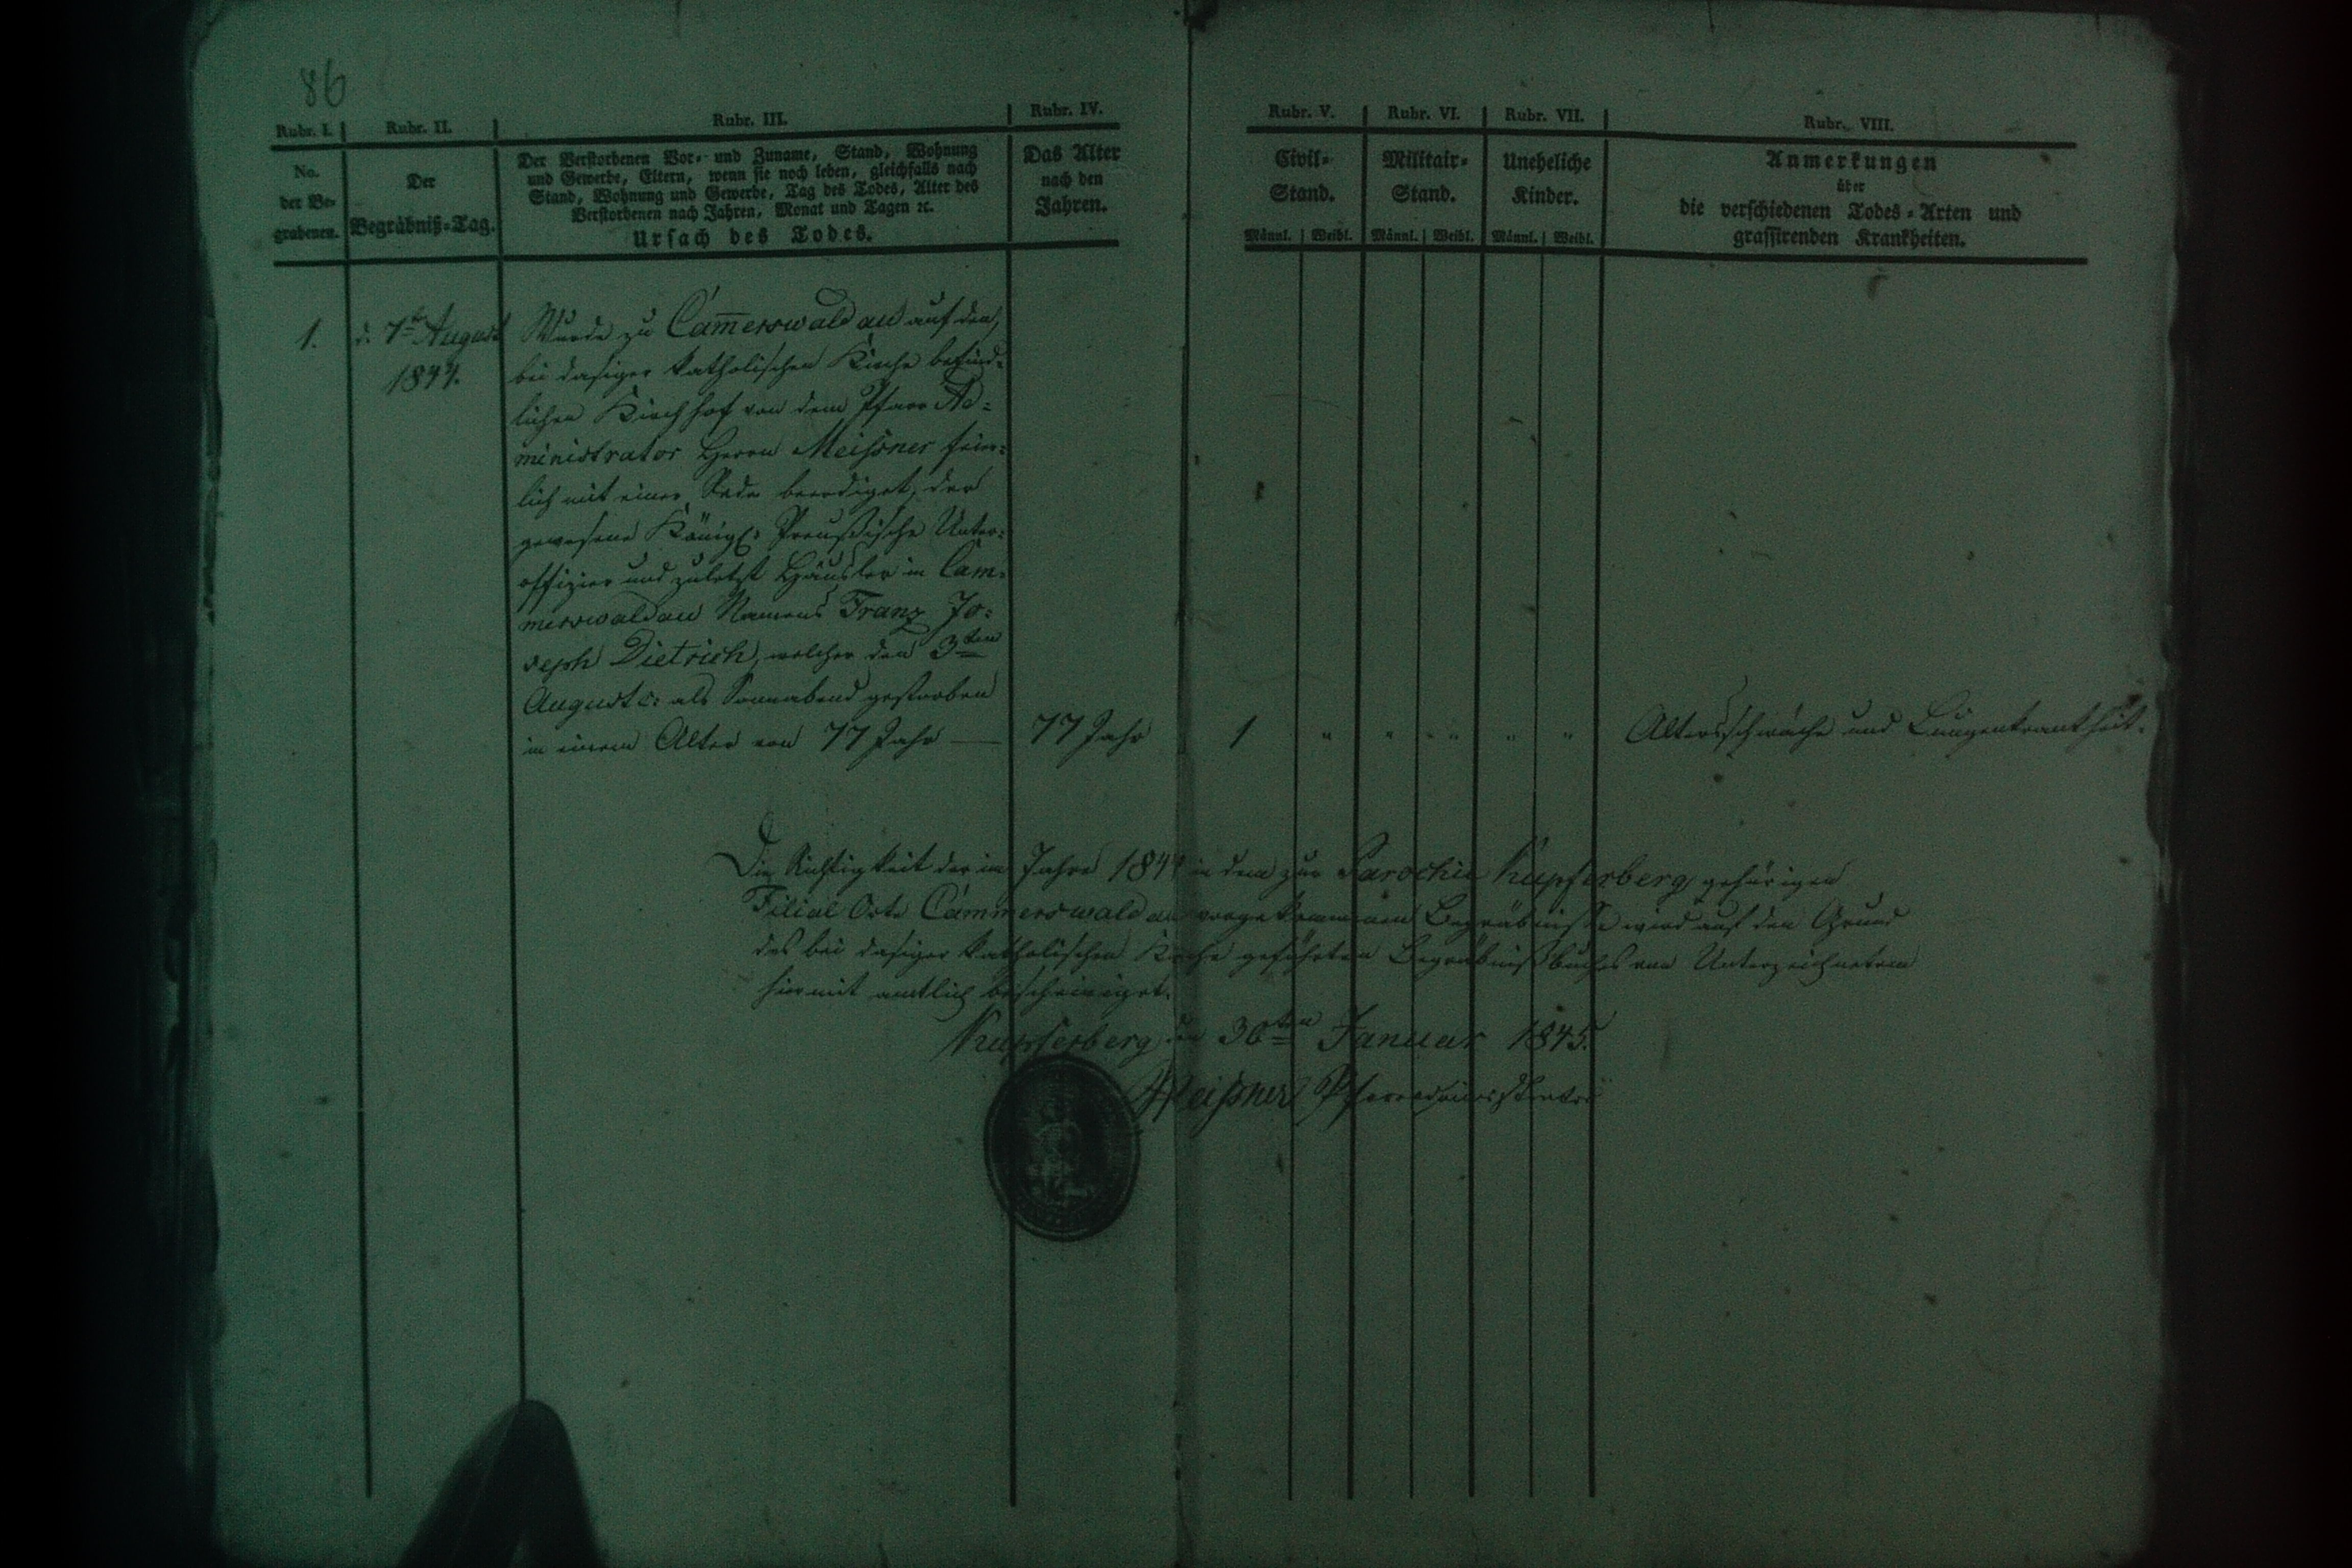 86
Rubr. I. Rubr. II. Rubr. III. Rubr. IV. Rubr. V. Rubr. VI. Rubr. VII. Rubr. VIII.
No.
der Be-
grabenen.
Der
Begräbniß-Tag.
Der Verstorbenen Vor- und Zuname, Stand, Wohnung
und Gewerbe, Eltern, wenn sie noch leben, gleichfalls nach
Stand, Wohnung und Gewerbe, Tag des Todes, Alter des
Verstorbenen nach Jahren, Monat und Tagen ꝛc.
Ursach des Todes.
Das Alter
nach den
Jahren.
Civil-
Stand.
Männl. Weibl.
Militair-
Stand.
Männl. Weibl.
Uneheliche
Kinder.
Männl. Weibl.
Anmerkungen
über
die verschiedenen Todes-Arten und
grassirenden Krankheiten.
1.
d. 7ten August
1844.
Wurde zu Cam̅erswaldau auf den,
bei dasiger katholischen Kirche befind-
lichen Kirchhof von dem Pfarr Ad=
ministrator Herrn Meißner feier=
lich mit einer Rede beerdiget, der
gewesene Königl: Preußische Unter=
offizier und zuletzt Häusler in Cam=
merswaldau Namens Franz Jo=
seph Dietrich, welcher den 3ten
August c: als Sonnabend gestorben
in einem Alter von 77 Jahr —
77 Jahr
1 " " " " "
Altersschwäche und Lungenkrankheit.
Die Richtigkeit der im Jahre 1844 in dem zur Parochie Kupferberg gehörigen
Filial Orte Cammerswaldau vorgekommenen Begräbnisse wird auf den Grund
des bei dasiger katholischen Kirche geführten Begräbnißbuches von Unterzeichnetem
hiermit amtlich bescheiniget.
Kupferberg den 30ten Januar 1845.
Meißner Pfarradministrator